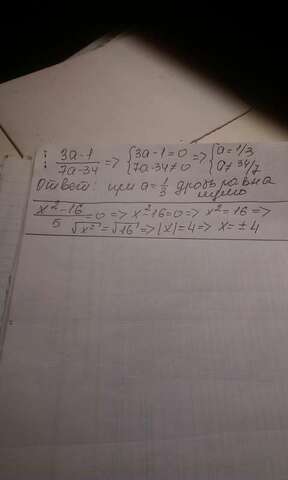 3a-1/7a-34 => {3a-1=0 7a-34≠0 => {a=1/3 a≠34/7
Ответ: при a=1/3 дробь равна
нулю
x²-16/5=0 => x²-16=0 => x²=16 =>
√x²=√16 => |x|=4 => x=±4